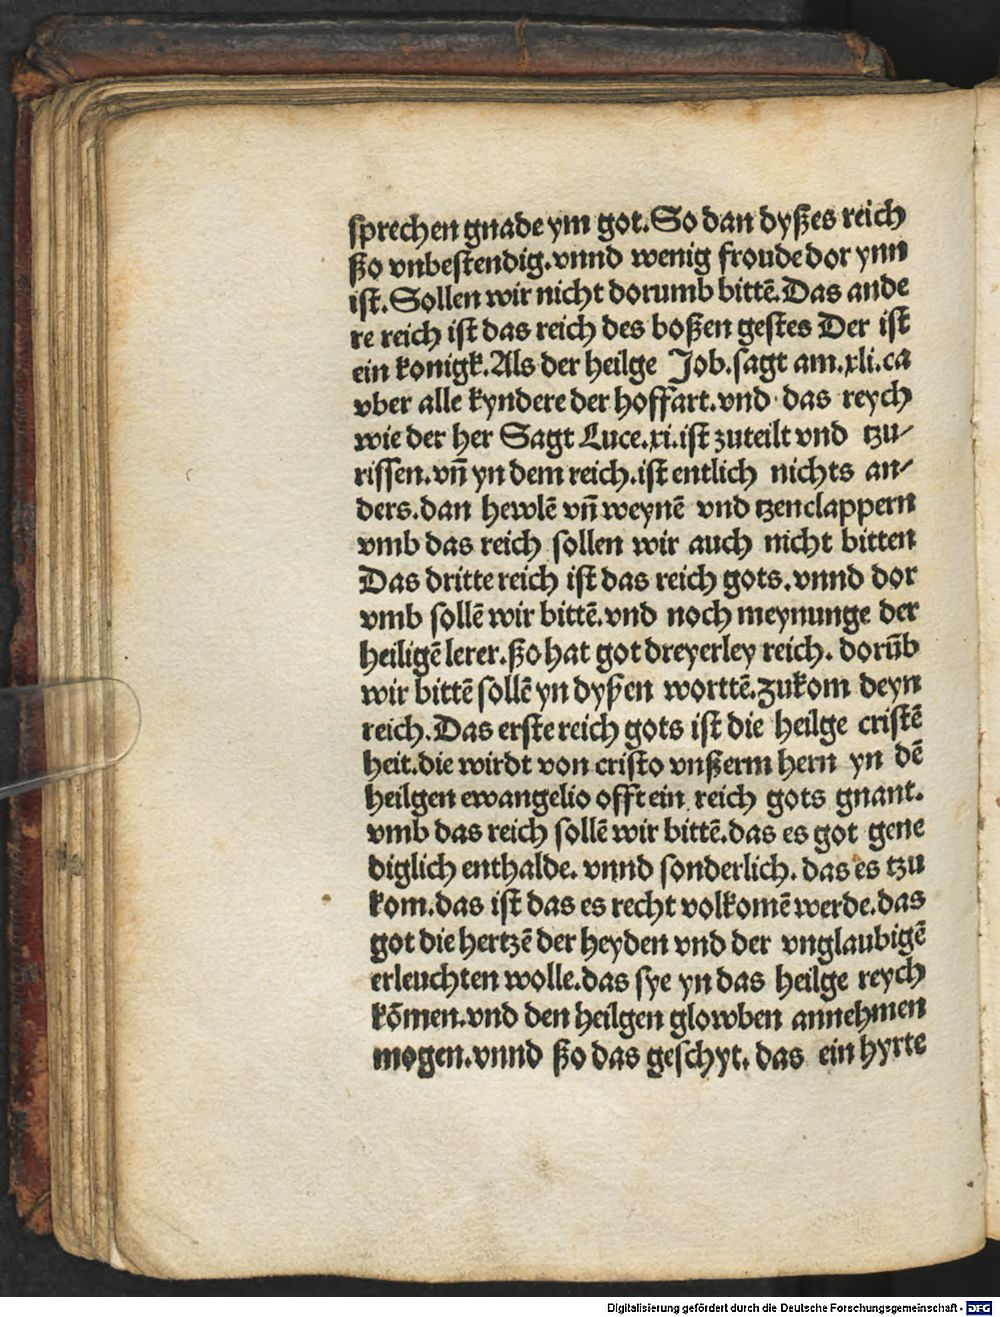 ſprechen gnade ym got. So dan dyßes reich
ßo vnbeſtendig. vnnd wenig froude dor ynn
iſt. Sollen wir nicht dorumb bittē. Das ande
re reich iſt das reich des boßen geſtes Der iſt
ein konigk. Als der heilge Job. ſagt am. xli. ca
vber alle kyndere der hoffart. vnd das reych
wie der her Sagt Luce. xi. iſt zuteilt vnd tzu⸗
riſſen. vn̄ yn dem reich. iſt entlich nichts an⸗
ders. dan hewlē vn̄ weynē vnd tzenclappern
vmb das reich ſollen wir auch nicht bitten
Das dritte reich iſt das reich gots. vnnd dor
vmb ſollē wir bittē. vnd noch meynunge der
heiligē lerer. ßo hat got dreyerley reich. dorūb
wir bittē ſollē yn dyßen worttē. Zukom deyn
reich. Das erſte reich gots iſt die heilge criſtē
heit. die wirdt von criſto vnßerm hern yn dē
heilgen ewangelio offt ein reich gots gnant.
vmb das reich ſollē wir bittē. das es got gene
diglich enthalde. vnnd ſonderlich. das es tzu
kom. das iſt das es recht volkomē werde. das
got die hertzē der heyden vnd der vnglaubigē
erleuchten wolle. das ſye yn das heilge reych
kōmen. vnd den heilgen glowben annehmen
mogen. vnnd ßo das geſchyt. das ein hyrte
Digitalisierung gefördert durch die Deutsche Forschungsgemeinschaft - DFG